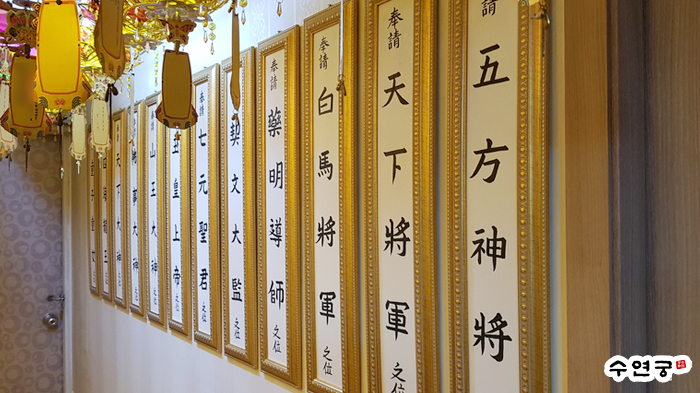 請 五方神將
奉請 天下將軍 之位
奉請 白馬將軍 之位
奉請 藥明導師 之位
契文大監 之位
奉請 七元聖君 之位
皇上帝 之位
奉請 山王大神 之位
事大神 之位
天下大神 之位
龍王
수연궁